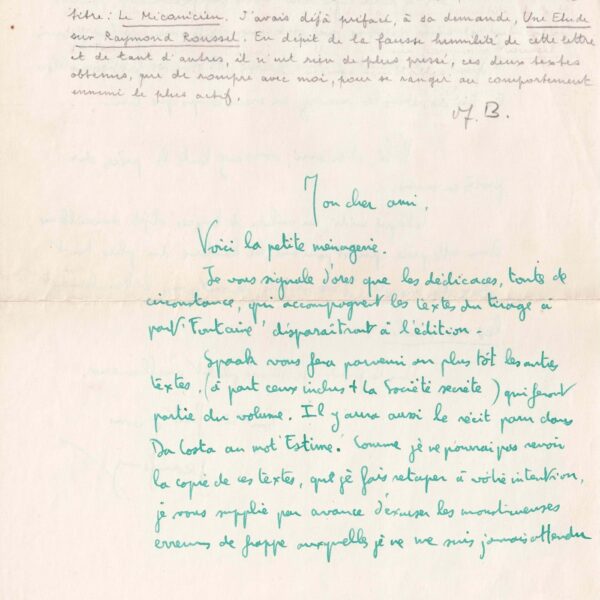 titre : Le Mécanicien. J'avais déjà préfacé, à sa demande, Une Etude
sur Raymond Roussel. En dépit de la fausse humilité de cette lettre
et de tant d'autres, il n'eut rien de plus pressé, ces deux textes
obtenus, que de rompre avec moi, pour se ranger au comportement
ennemi le plus actif.
A. B.
Mon cher ami,
Voici la petite ménagerie.
Je vous signale d'ores que les dédicaces, toute de
circonstance, qui accompagnent les textes du tirage à
part "Fontaine" disparaîtront à l'édition.
Spaak vous fera parvenir au plus tôt les autres
textes (à part ceux inclus + la Société secrète) qui feront
partie du volume. Il y aura aussi le récit paru dans
Da Costa au mot "Estime". Comme je ne pourrai pas revoir
la copie de ces textes, que je fais retaper à votre intention,
je vous supplie par avance d'excuser les monstrueuses
erreurs de frappe auxquelles je ne me suis jamais attendu